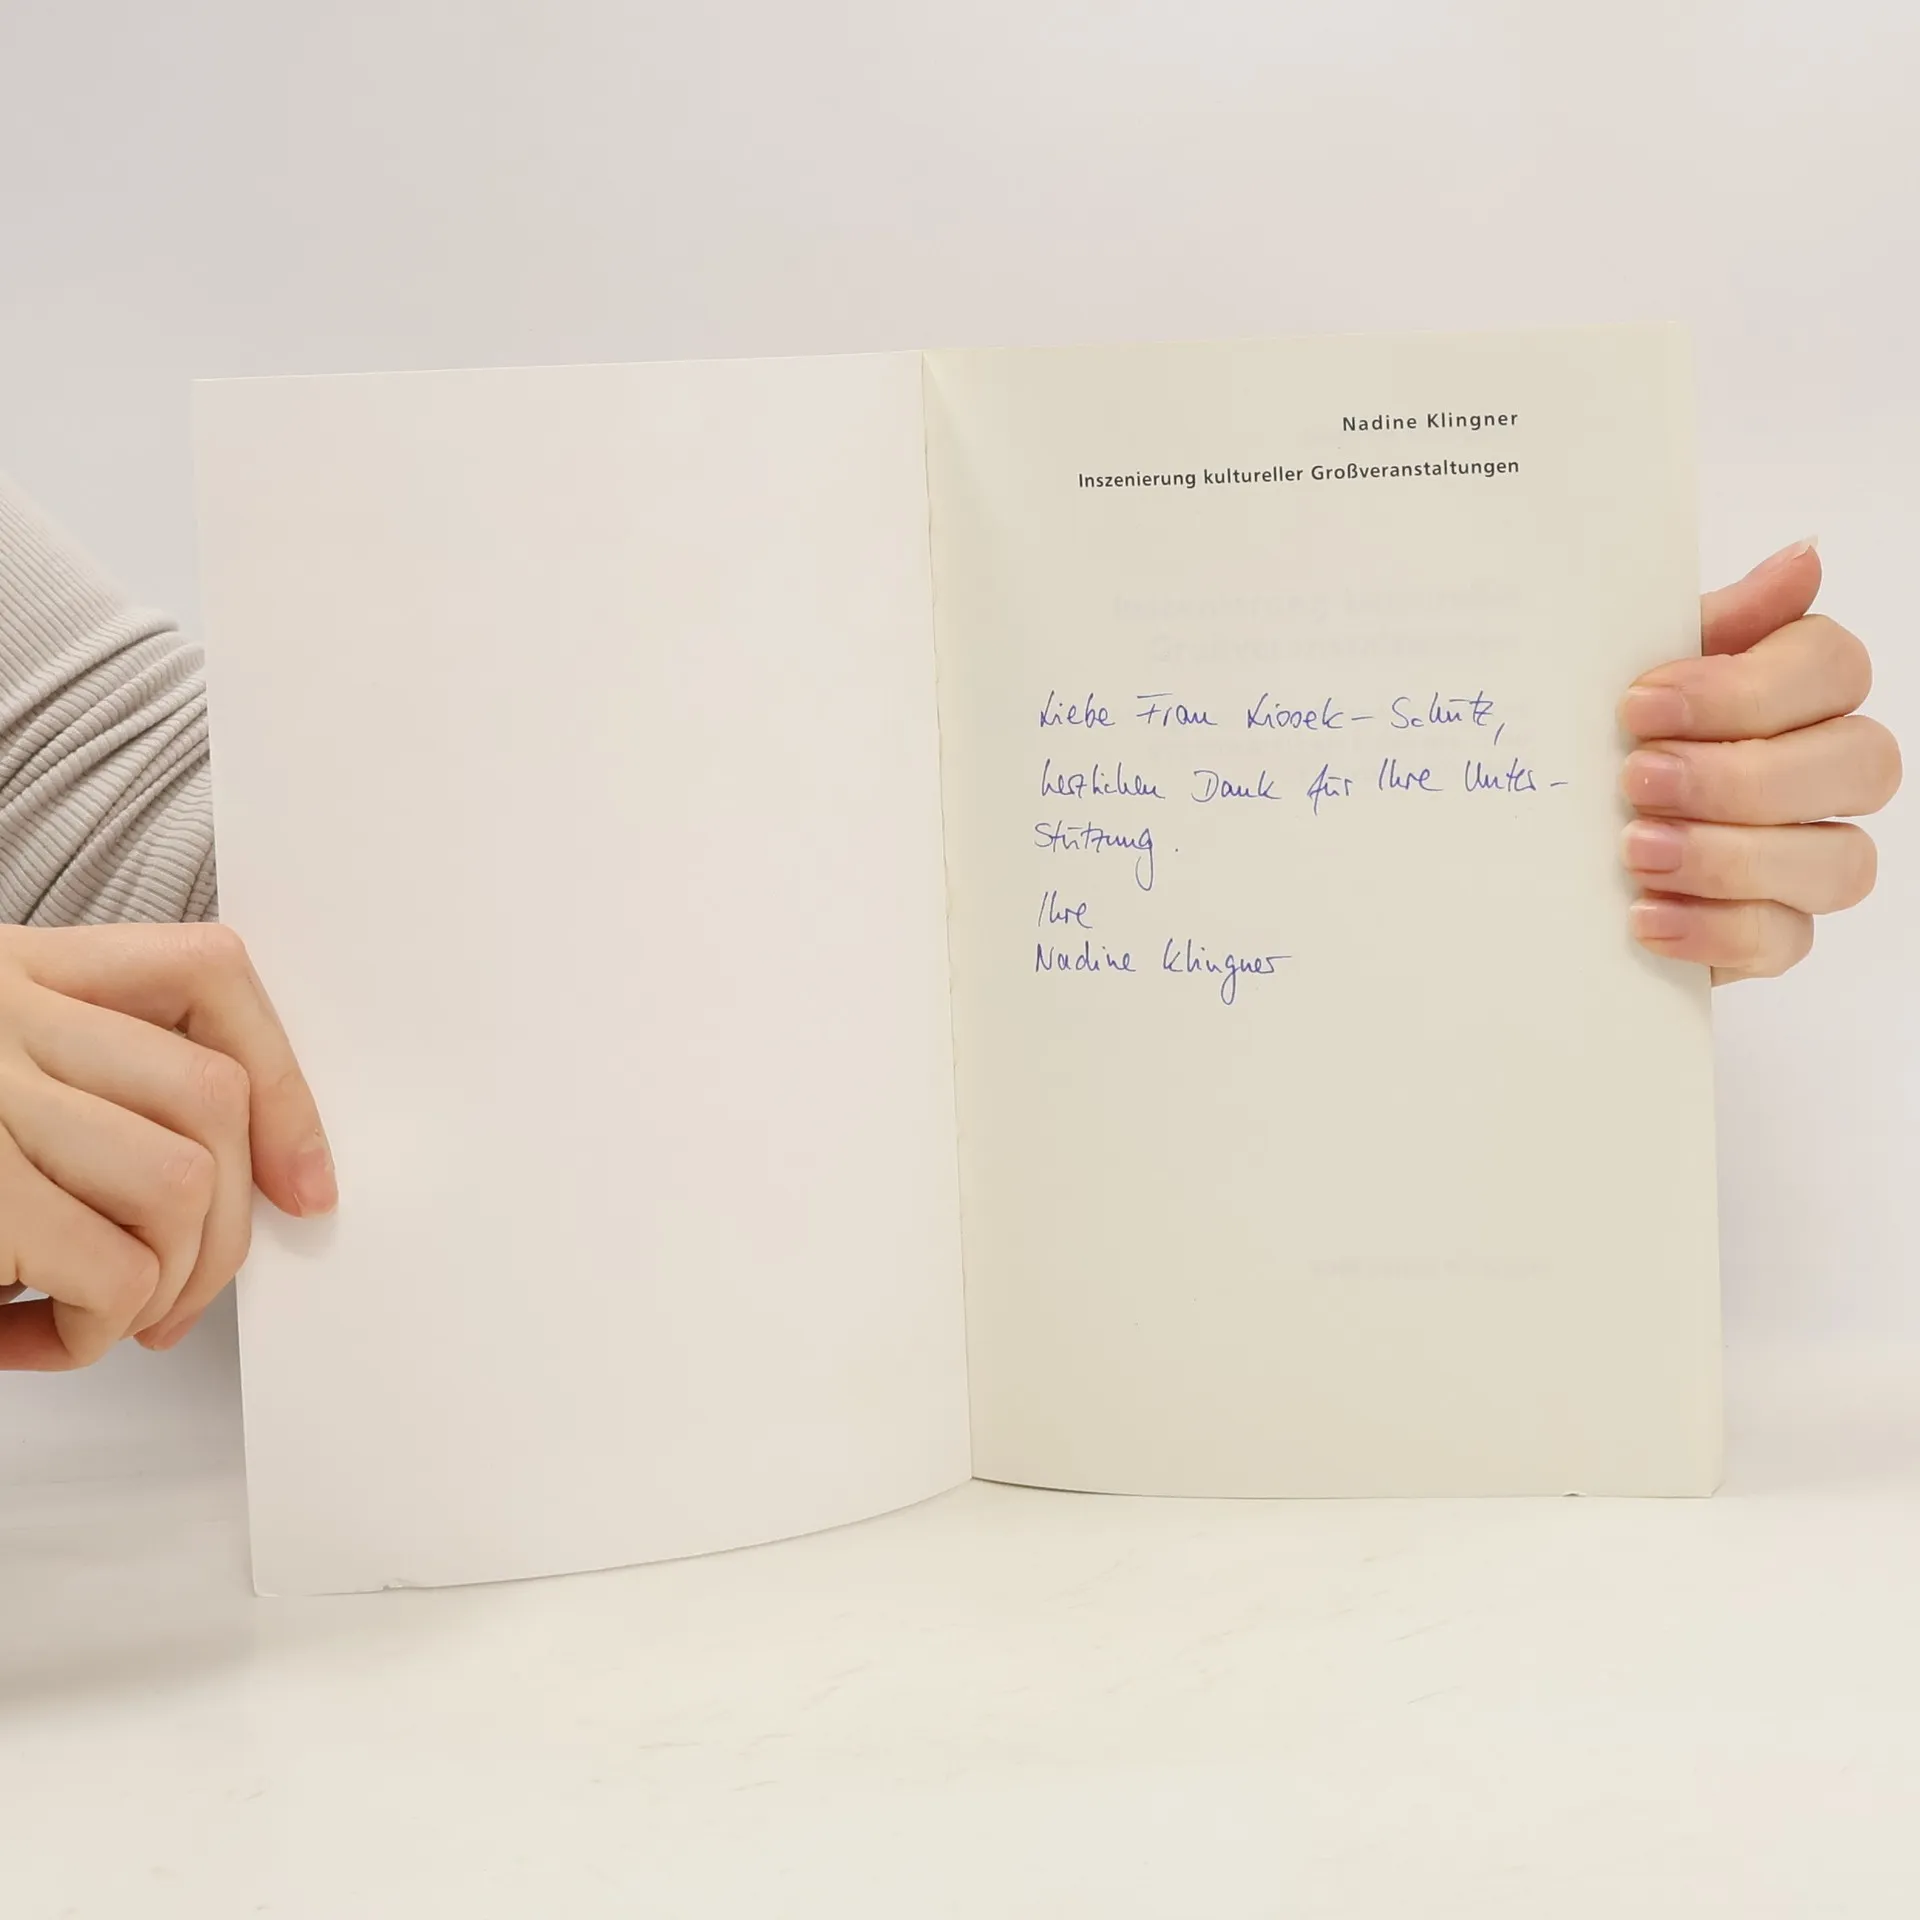 Nadine Klingner
Inszenierung kultureller Großveranstaltungen
Liebe Frau Lissek-Schütz,
herzlichen Dank für Ihre Unter-
stützung.
Ihre
Nadine Klingner